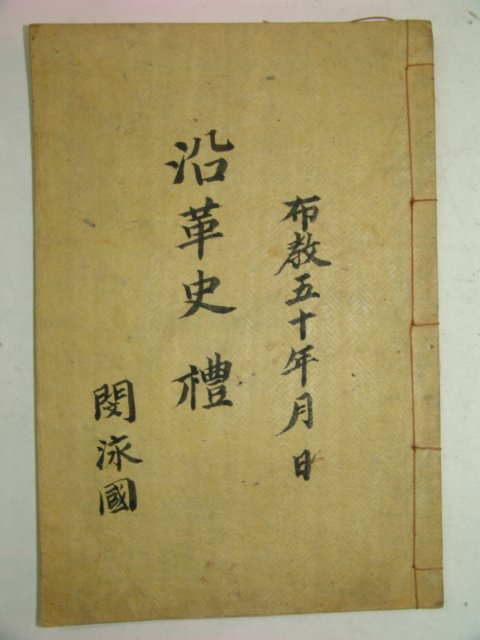 布教五十年月日
沿革史 禮
閔泳國